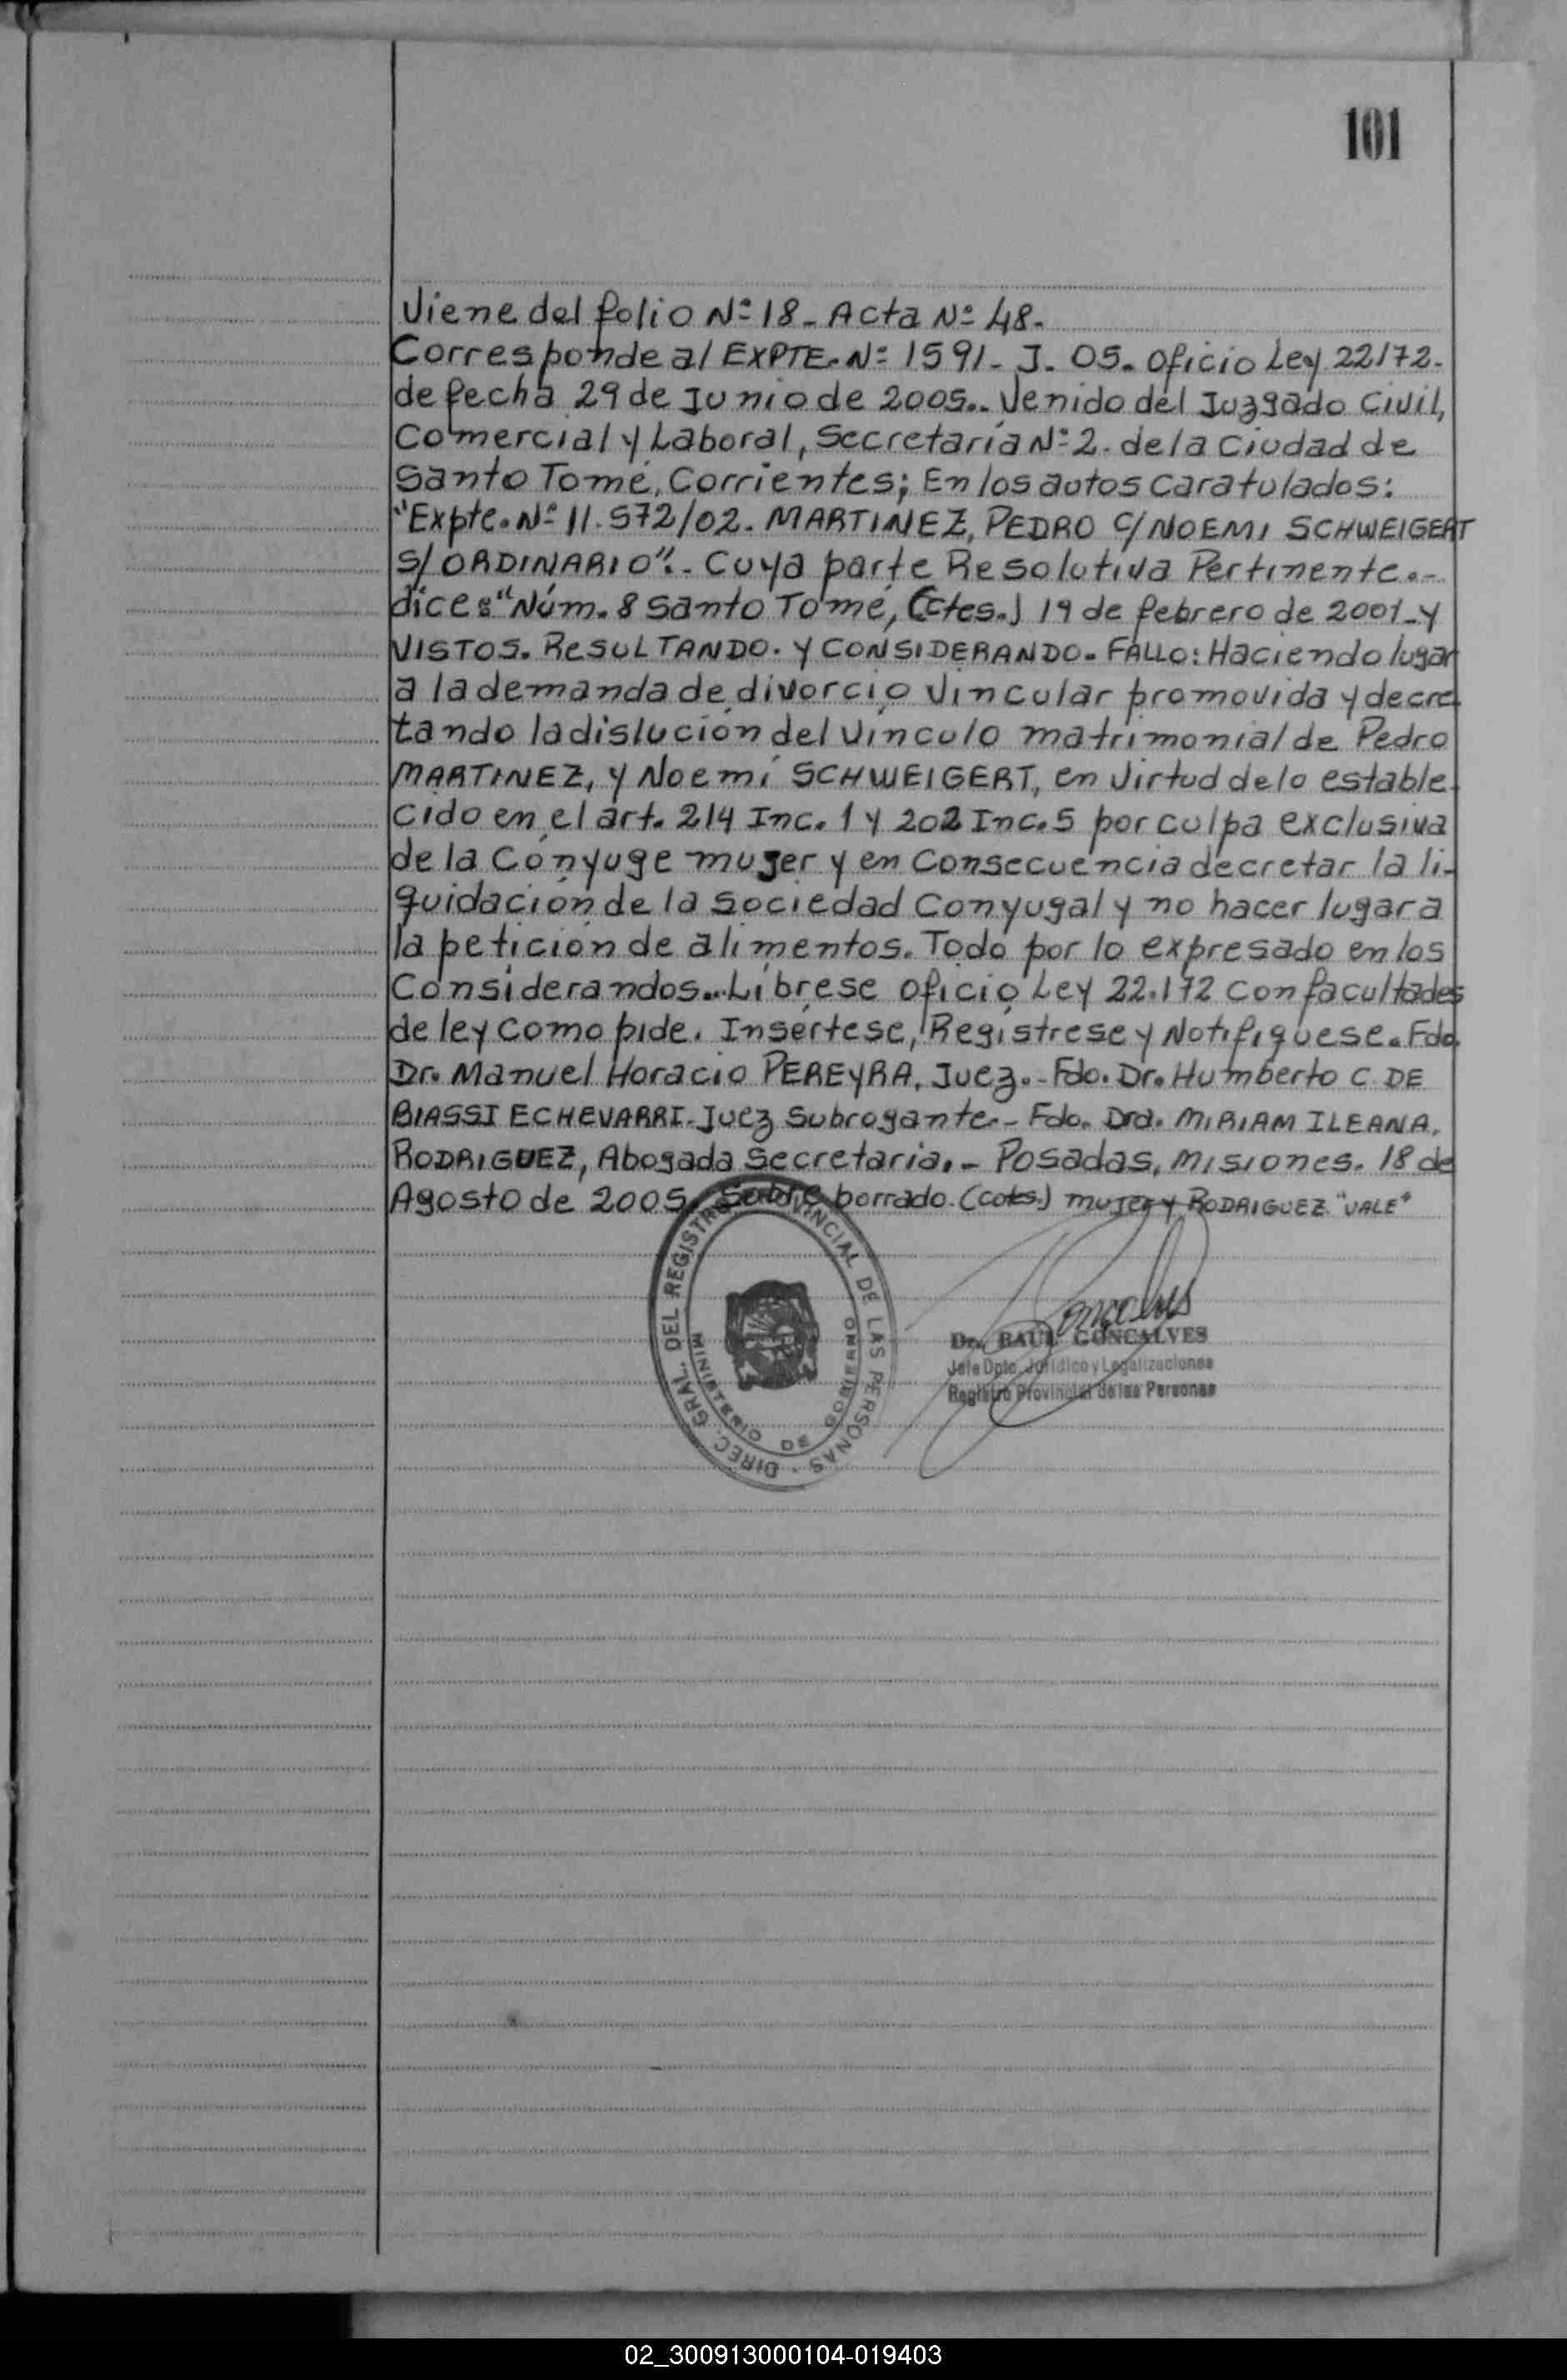 101
Viene del folio Nº 18- Acta Nº 48-
Corresponde al EXPTE. Nº 1591- J. 05. oficio Ley 22172-
de fecha 29 de Junio de 2005.. Venido del Juzgado Civil,
Comercial y Laboral, Secretaría Nº 2. de la Ciudad de
Santo Tomé, Corrientes; En los autos caratulados:
"Expte. Nº 11.572/02. MARTINEZ, PEDRO C/ NOEMI SCHWEIGERT
S/ ORDINARIO".- Cuya parte Resolutiva Pertinente.-
dice: "Núm. 8 Santo Tomé, (Ctes.) 19 de febrero de 2001- y
VISTOS. RESULTANDO. Y CONSIDERANDO- FALLO: Haciendo lugar
a la demanda de divorcio vincular promovida y decre
tando la dislución del vínculo matrimonial de Pedro
MARTINEZ, y Noemí SCHWEIGERT, en virtud de lo estable-
cido en el art. 214 Inc. 1 y 202 Inc. 5 por culpa exclusiva
de la Cónyuge mujer y en Consecuencia decretar la li-
quidación de la sociedad Conyugal y no hacer lugar a
la petición de alimentos. Todo por lo expresado en los
Considerandos... Líbrese oficio Ley 22.172 con facultades
de ley como pide. Insértese, Regístrese y Notifíquese. Fdo.
Dr. Manuel Horacio PEREYRA, Juez.- Fdo. Dr. Humberto C. DE
BIASSI ECHEVARRI- Juez Subrogante.- Fdo. Dra. MIRIAM ILEANA.
RODRIGUEZ, Abogada Secretaria.- Posadas, Misiones. 18 de
Agosto de 2005. Sobre borrado. mujer y RODRIGUEZ "VALE"
DIREC. GRAL. DEL REGISTRO PROVINCIAL DE LAS PERSONAS
MINISTERIO DE GOBIERNO
Goncalves
Dr. RAUL GONCALVES
Jefe Dpto. Jurídico y Legalizaciones
Registro Provincial de las Personas
02_300913000104-019403